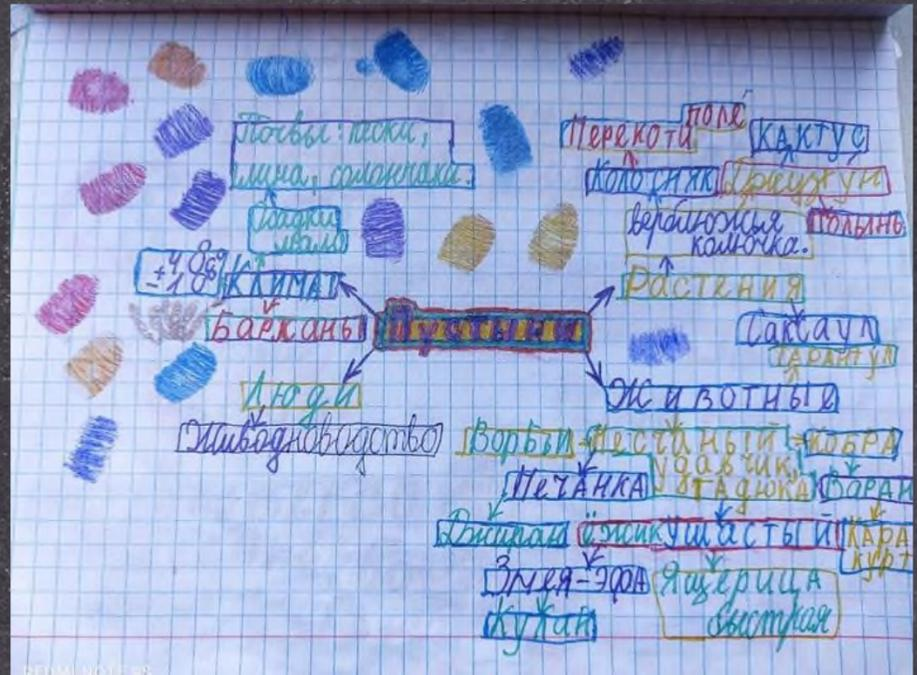 Почвы: пески,
глина, солончаки.
Осадки
мало
КЛИМАТ
Барханы
Пустыни
Люди
Животноводство
поле
Перекоти
КАКТУС
Колосняк
Джузгун
Полынь
верблюжья
колючка.
Растения
Саксаул
ТАРАНТУЛ
Животные
Ворбьи
Песчаный
удавчик,
КОБРА
ПеЧАНКА
ГАДЮКА
Варан
Джиран
ёжик
ушастый
КАРА
КУРТ
Змея-ЭФА
Ящерица
быстрая
Кулан
REDMI NOTE 8